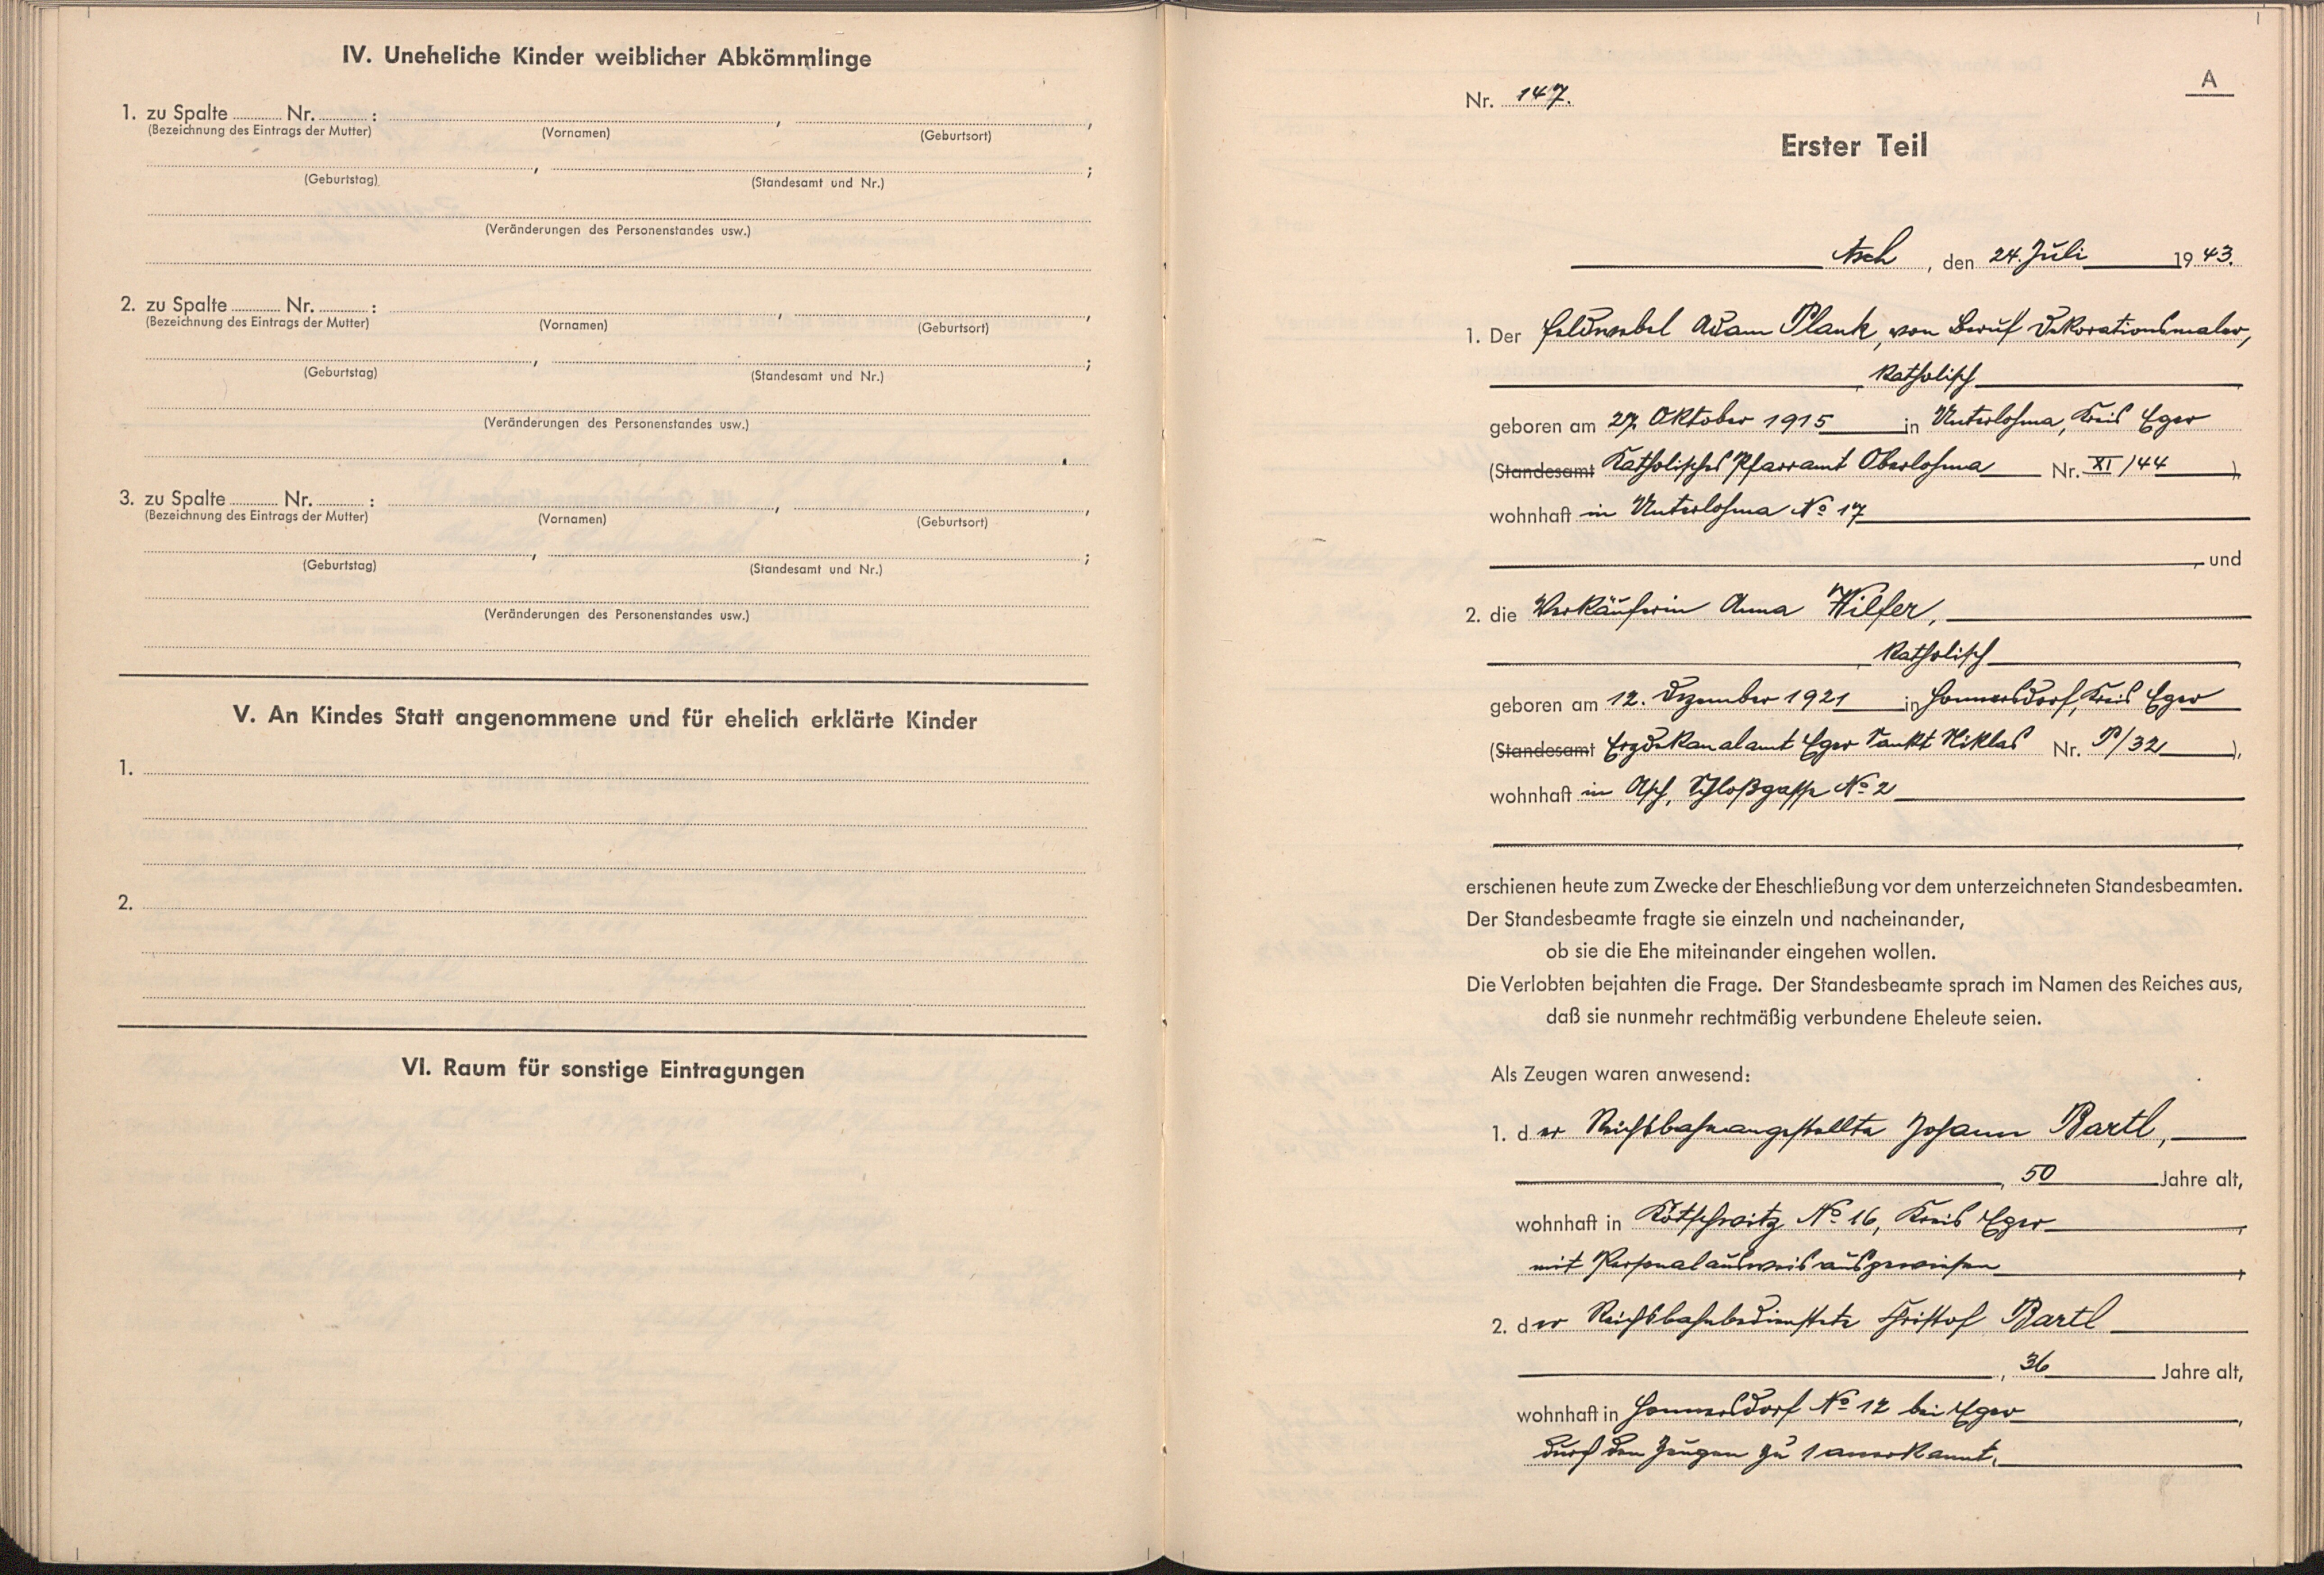 IV. Uneheliche Kinder weiblicher Abkömmlinge
1. zu Spalte ........ Nr. ........ : ........ , ........ ,
(Bezeichnung des Eintrags der Mutter) (Vornamen) (Geburtsort)
........ , ........ ;
(Geburtstag) (Standesamt und Nr.)
(Veränderungen des Personenstandes usw.)
2. zu Spalte ........ Nr. ........ : ........ , ........ ,
(Bezeichnung des Eintrags der Mutter) (Vornamen) (Geburtsort)
........ , ........ ;
(Geburtstag) (Standesamt und Nr.)
(Veränderungen des Personenstandes usw.)
3. zu Spalte ........ Nr. ........ : ........ , ........ ,
(Bezeichnung des Eintrags der Mutter) (Vornamen) (Geburtsort)
........ , ........ ;
(Geburtstag) (Standesamt und Nr.)
(Veränderungen des Personenstandes usw.)
V. An Kindes Statt angenommene und für ehelich erklärte Kinder
1.
2.
VI. Raum für sonstige Eintragungen
A
Nr. 147.
Erster Teil
Asch, den 24. Juli 1943.
1. Der Feldwebel Adam Plank, von Beruf Dekorationsmaler,
katholisch
geboren am 27. Oktober 1915 in Unterlohma, Kreis Eger
(Standesamt Katholisches Pfarramt Oberlohma Nr. XI/44),
wohnhaft in Unterlohma No 17
, und
2. die Verkäuferin Anna Wilfer,
katholisch
geboren am 12. Dezember 1921 in Sommersdorf, Kreis Eger
(Standesamt Erzdekanalamt Eger Sankt Niklas Nr. P/32),
wohnhaft in Asch, Schloßgasse No 2
erschienen heute zum Zwecke der Eheschließung vor dem unterzeichneten Standesbeamten.
Der Standesbeamte fragte sie einzeln und nacheinander,
ob sie die Ehe miteinander eingehen wollen.
Die Verlobten bejahten die Frage. Der Standesbeamte sprach im Namen des Reiches aus,
daß sie nunmehr rechtmäßig verbundene Eheleute seien.
Als Zeugen waren anwesend:
1. der Reichsbahnangestellte Johann Bartl,
, 50 Jahre alt,
wohnhaft in Kötschwitz No 16, Kreis Eger
mit Personalausweis ausgewiesen,
2. der Reichsbahnbedienstete Christof Bartl
, 36 Jahre alt,
wohnhaft in Sommersdorf No 12 bei Eger,
durch den Zeugen zu 1 anerkannt.